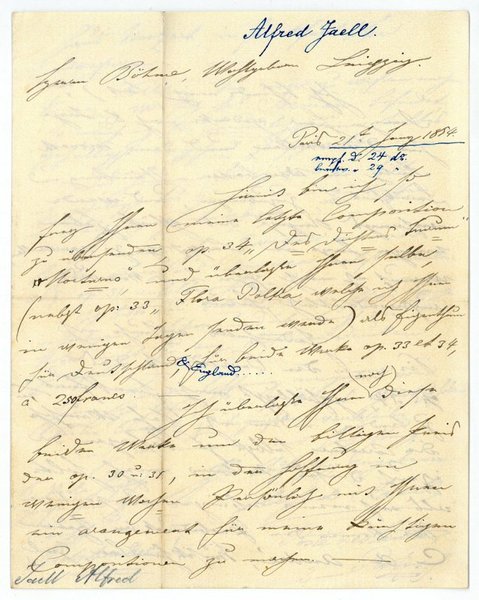 Alfred Jaell.
Herrn Böhme, Wohlgeboren Leipzig
Paris 21ten Juny 1854.
empf. d. 24 ds.
beantw. " 29 "
Hiermit bin ich so
frey Ihnen meine letzte Composition
zu übersenden, op 34, "Des Dichters Traum"
"Nocturno", und überlasse Ihnen selbe
(nebst op. 33, Flora Polka, welche ich Ihnen
in wenigen Tagen senden werde) als Eigenthum
für Deutschland & England..... für beide Werke op. 33 et 34,
à 250 francs. Ich überlasse Ihnen (noch) diese
beiden Werke um den billigen Preis
der op. 30 u. 31, in der Hoffnung in
wenigen Wochen Persönlich mit Ihnen
ein arangement für meine künftigen
Compositionen zu machen.
Jaell Alfred